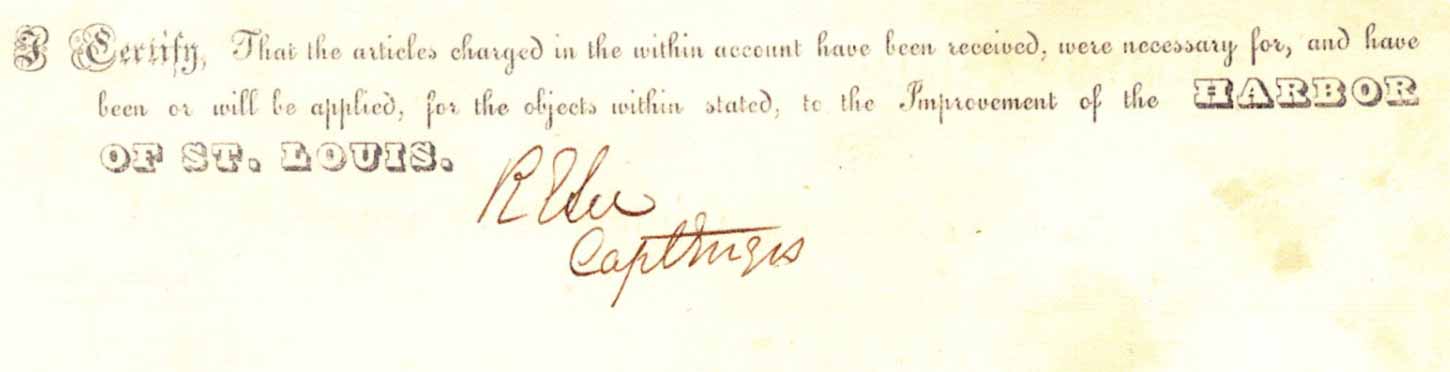 I Certify, That the articles charged in the within account have been received, were necessary for, and have
been or will be applied, for the objects within stated, to the Improvement of the HARBOR
OF ST. LOUIS.
R E Lee
Capt Engrs